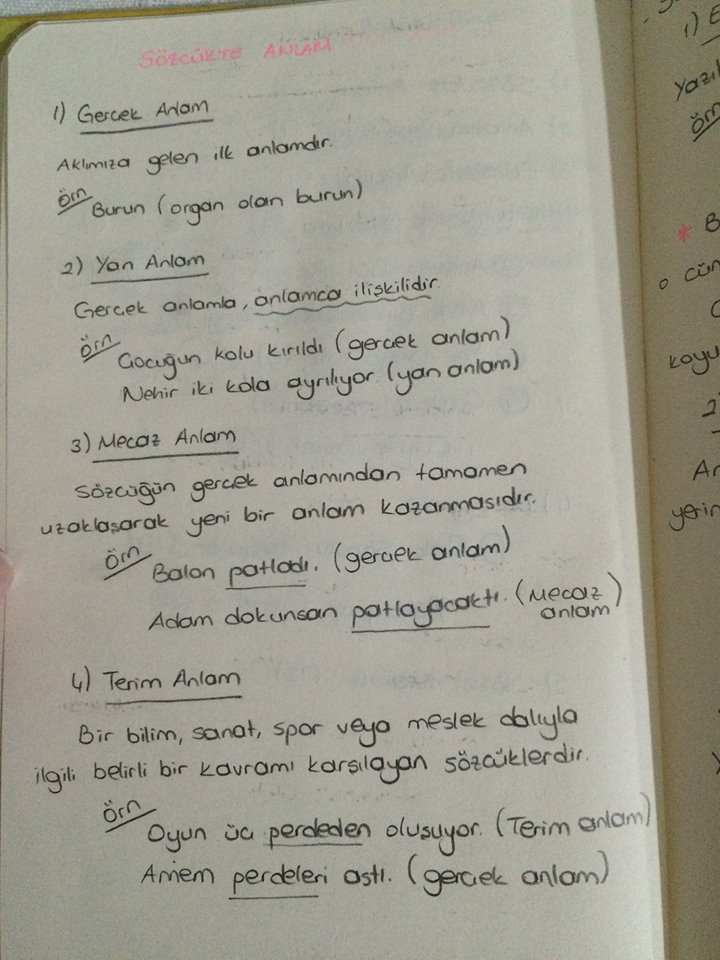 SÖZCÜKTE ANLAM
1) Gerçek Anlam
Aklımıza gelen ilk anlamdır.
Örn
Burun (organ olan burun)
2) Yan Anlam
Gerçek anlamla, anlamca ilişkilidir.
Örn
Çocuğun kolu kırıldı (gerçek anlam)
Nehir iki kola ayrılıyor. (yan anlam)
3) Mecaz Anlam
Sözcüğün gerçek anlamından tamamen
uzaklaşarak yeni bir anlam kazanmasıdır.
Örn
Balon patladı. (gerçek anlam)
Adam dokunsan patlayacaktı. (Mecaz anlam)
4) Terim Anlam
Bir bilim, sanat, spor veya meslek dalıyla
ilgili belirli bir kavramı karşılayan sözcüklerdir.
Örn
Oyun üç perdeden oluşuyor. (Terim anlam)
Annem perdeleri astı. (gerçek anlam)
1)
Örn
* B
o cün
koyu
2
An
yerin